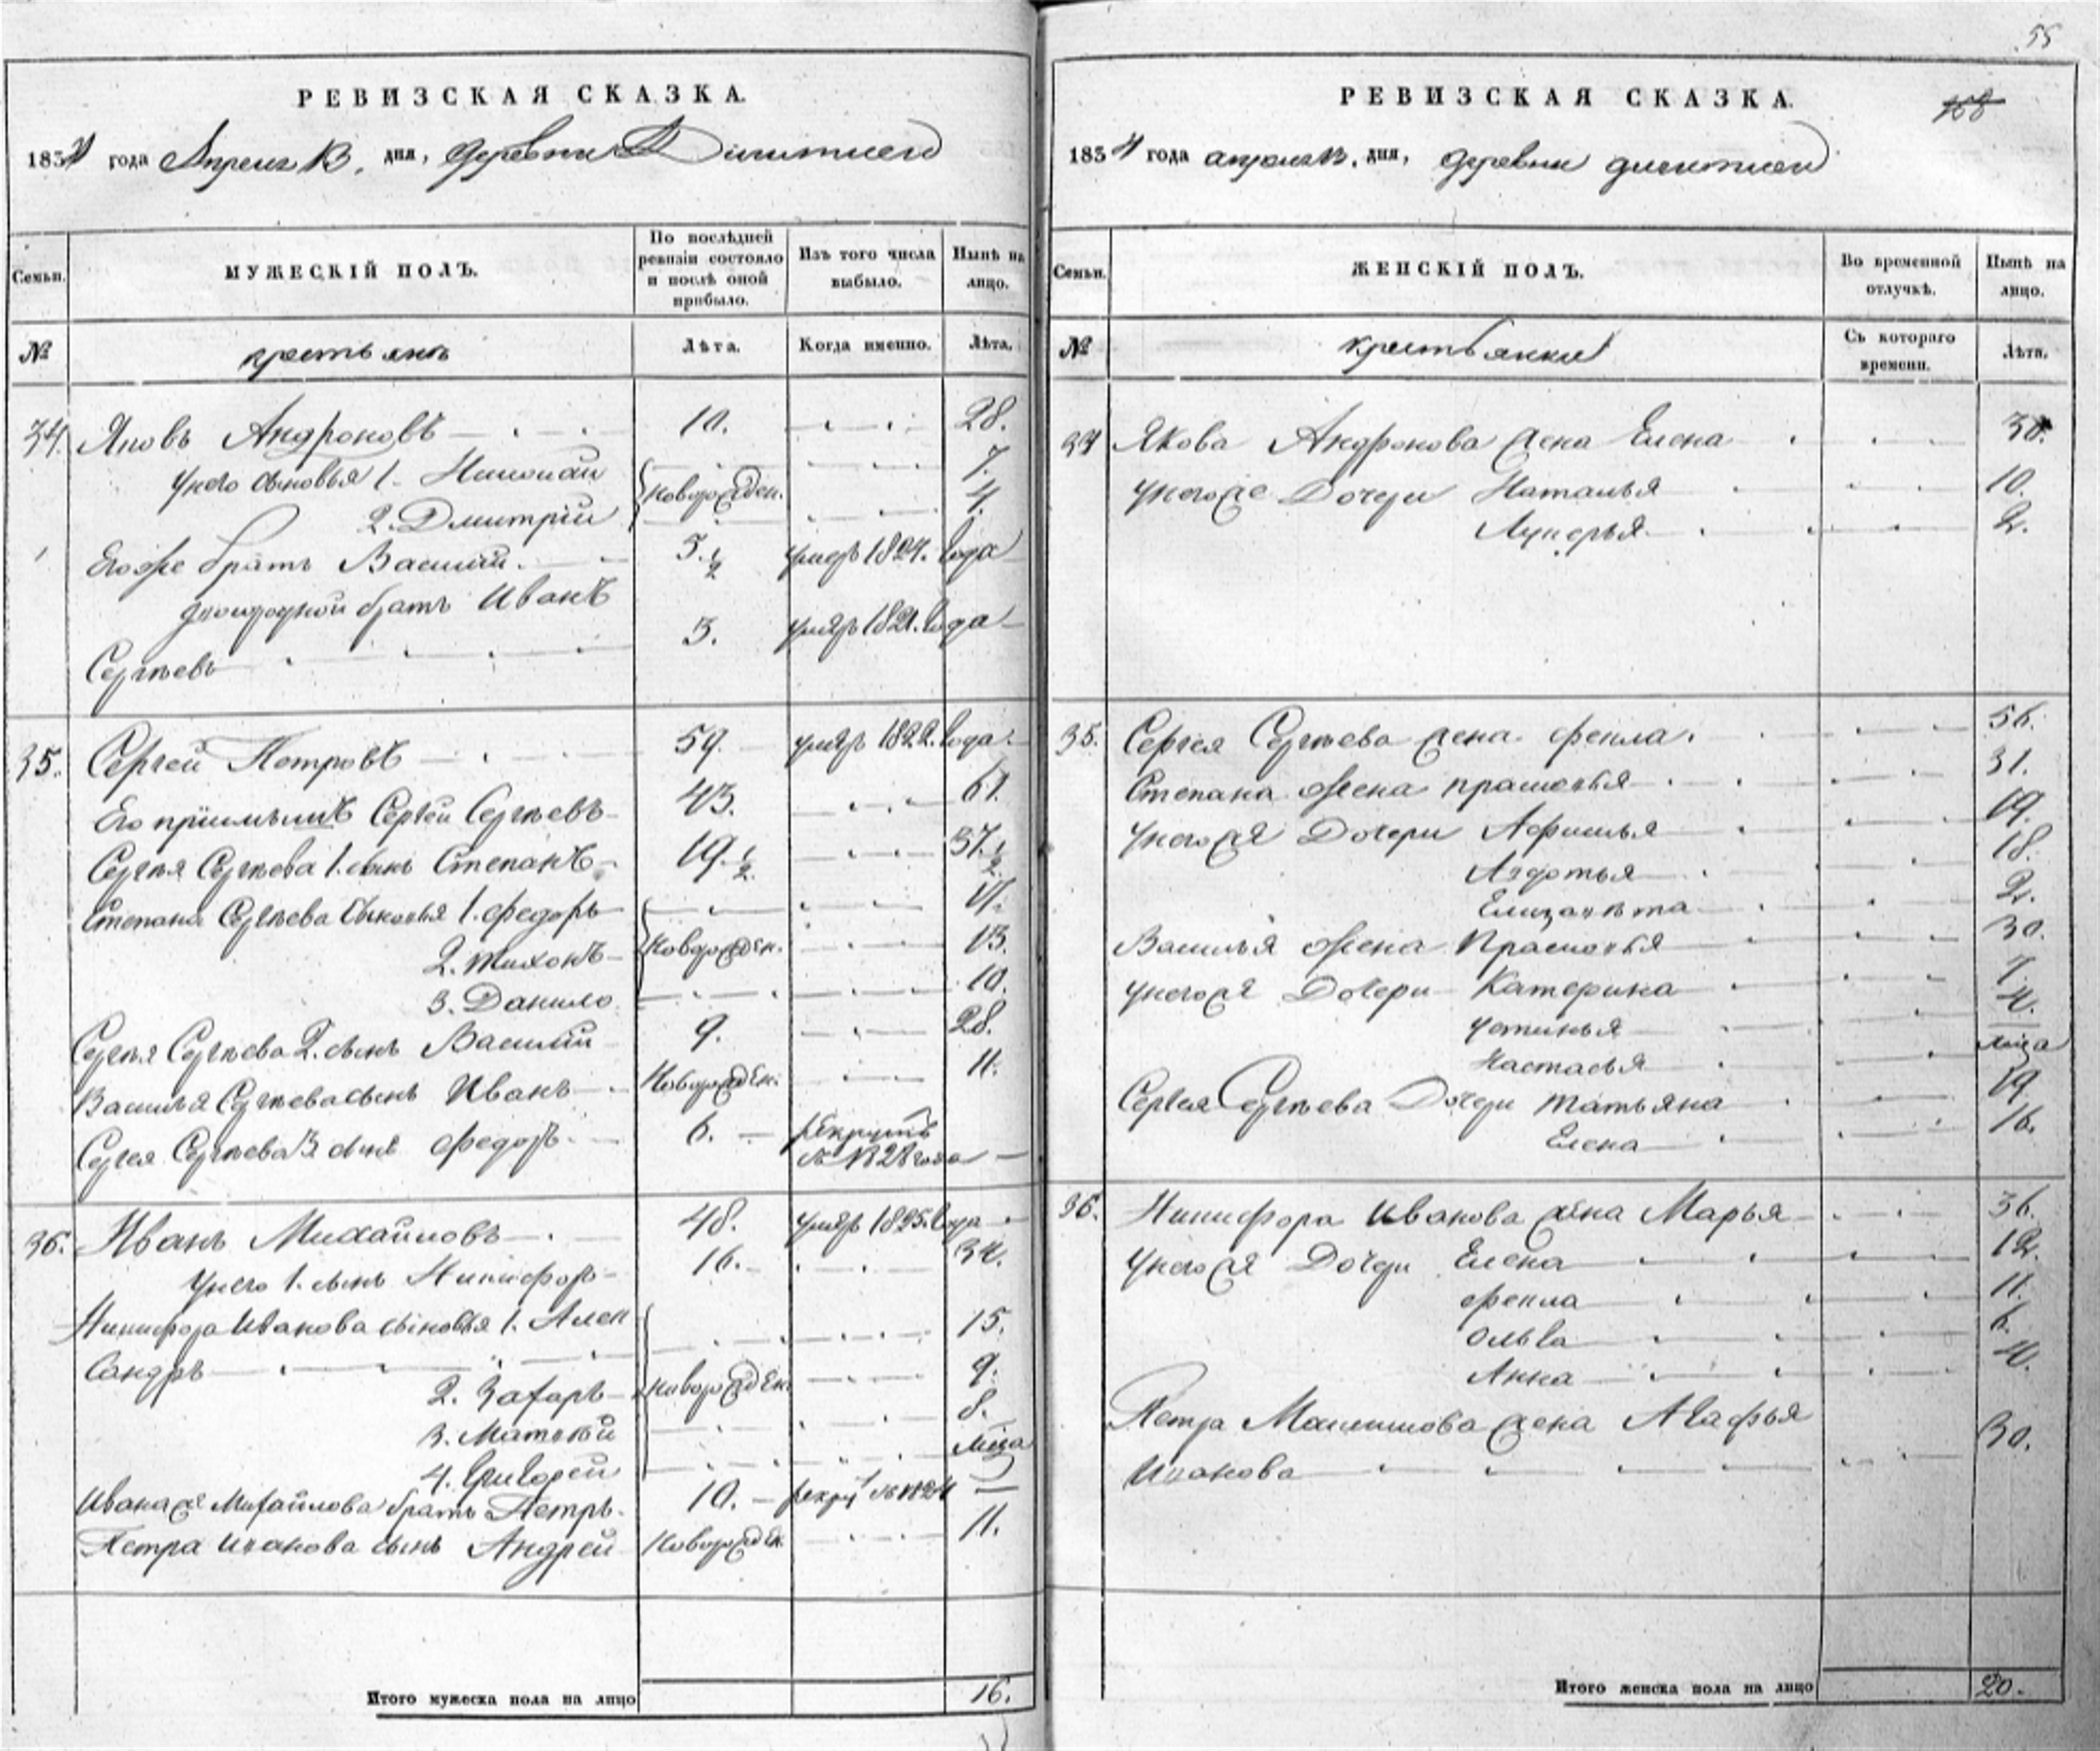 РЕВИЗСКАЯ СКАЗКА.
1834 года Апреля 13. дня, деревни
Семьи.
МУЖЕСКІЙ ПОЛЪ.
По послѣдней ревизіи состояло и послѣ оной прибыло.
Изъ того числа выбыло.
Нынѣ на лицо.
№
крестьянъ
Лѣта.
Когда именно.
Лѣта.
34. Яковъ Андроновъ 10. 28.
у него сыновья 1. Николай 7.
новорожден.
2. Дмитрій 4.
Его же братъ Василий. 5.½ умеръ 1827. года
двоюродной братъ Иванъ
Сергѣевъ 3. умеръ 1821. года
35. Сергей Петровъ 59. умеръ 1822. года
Его приимышъ Сергей Сергѣевъ 43. 61.
Сергѣя Сергѣева 1. сынъ Степанъ 19.½ 37.½
Степана Сергѣева сыновья 1. федоръ 17.
2. тихонъ новорожден. 13.
3. Данило 10.
Сергѣя Сергѣева 2. сынъ Василий 9. 28.
Василья Сергѣева сынъ Иванъ Новорожден. 11.
Сергея Сергѣева 3 сынъ федоръ 6. рекрутъ
въ 1828 года
36. Иванъ Михайловъ 48. умеръ 1825. года
у него 1. сынъ Никифоръ 16. 34.
Никифора Иванова сыновья 1. Алек
сандръ 15.
2. Захаръ новорожден. 9.
3. Матвѣй 8.
4. Григорей
Ивана же Михайлова братъ Петръ 10. рекру въ 1824
Петра Иванова сынъ Андрей Новорожден 11.
Итого мужеска пола на лицо 16.
55
168
РЕВИЗСКАЯ СКАЗКА.
1834 года апреля 13. дня, деревни
Семьи.
ЖЕНСКІЙ ПОЛЪ.
Во временной отлучкѣ.
Нынѣ на лицо.
№
крестьянки
Съ котораго времени.
Лѣта.
34 Якова Андронова жена Елена 30.
у него же Дочери Наталья 10.
Лукерья 2.
35. Сергея Сергѣева жена фекла. 56.
Степана жена прасковья 31.
у него же Дочери Афимья 19.
Авдотья 18.
Елизавѣта 2.
Василья жена Прасковья 30.
у него же Дочери Катерина 7.
устинья 4.
Настасья
Сергея Сергѣева Дочери татьяна 19.
Елена 16.
36. Никифора Иванова жена Марья 36.
у него же Дочери Елена 12.
фекла 11.
Ольга 6.
Анна 4.
Петра жена Агафья
Иванова 30.
Итого женска пола на лицо 20.